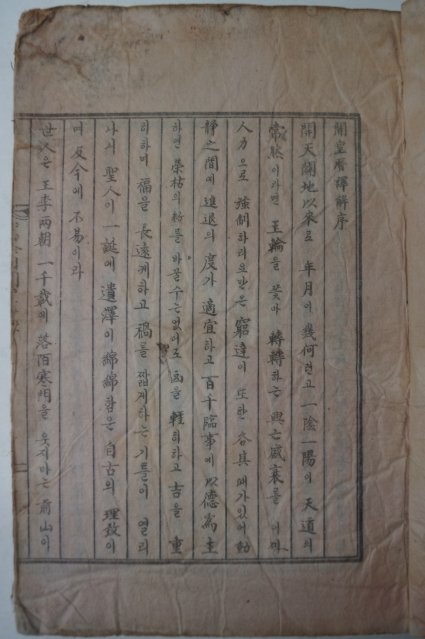 開皇曆譯解序
開天闢地以來로 年月이 幾何런고 一陰一陽이 天道의
常然이라면 王輪을 꽃아 轉轉하는 興亡盛衰를 어찌
人力으로 强制하리오만은 窮達이 또한 各其 때가 있어 動
靜之間에 進退의 度가 適宜하고 百千臨事에 以德爲主
하면 榮枯의 粉를 바꿀수는 없어도 凶을 輕히하고 吉을 重
히하며 福을 長遠케하고 禍를 짧게하는 기틀이 열리
나니 聖人이 一誕에 遺澤이 綿綿함은 自古의 理致이
며 反今에 不易이라
世人은 王李兩朝 一千歲에 落陌寒門을 웃지마는 前山이